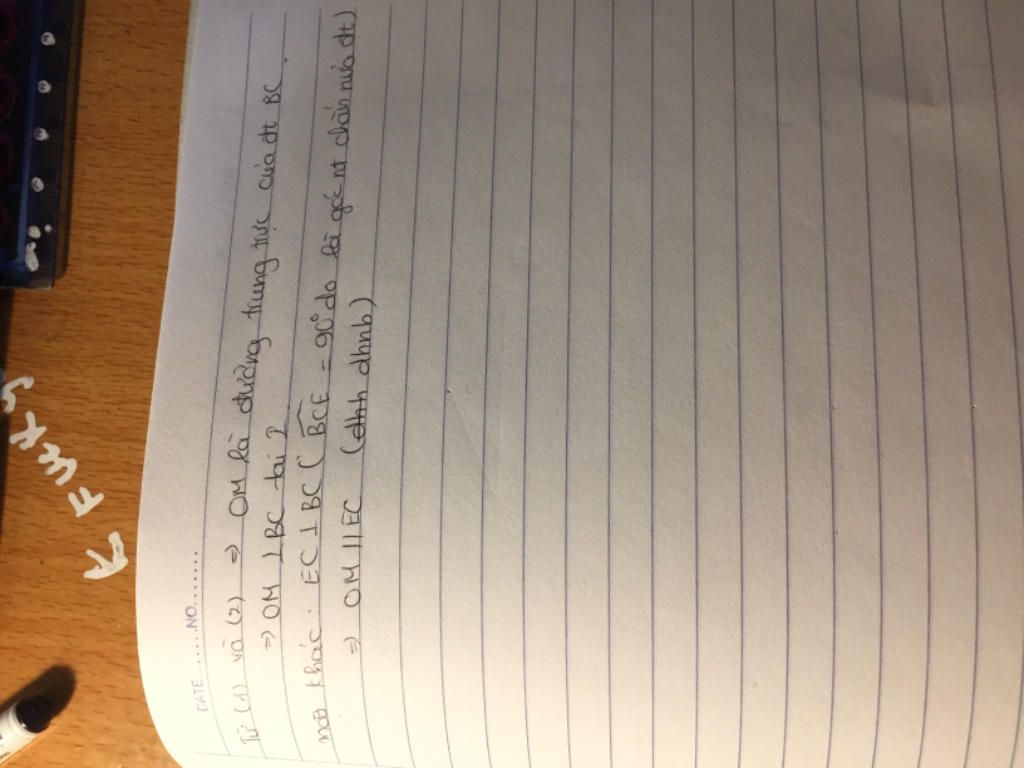 DATE..........NO..........
Từ (1) và (2) ⇒ OM là đường trung trực của đt BC.
⇒ OM ⊥ BC tại I
mà khác: EC ⊥ BC (BCE = 90° do là góc nt chắn nửa đt)
⇒ OM // EC (cđhn dhnb)